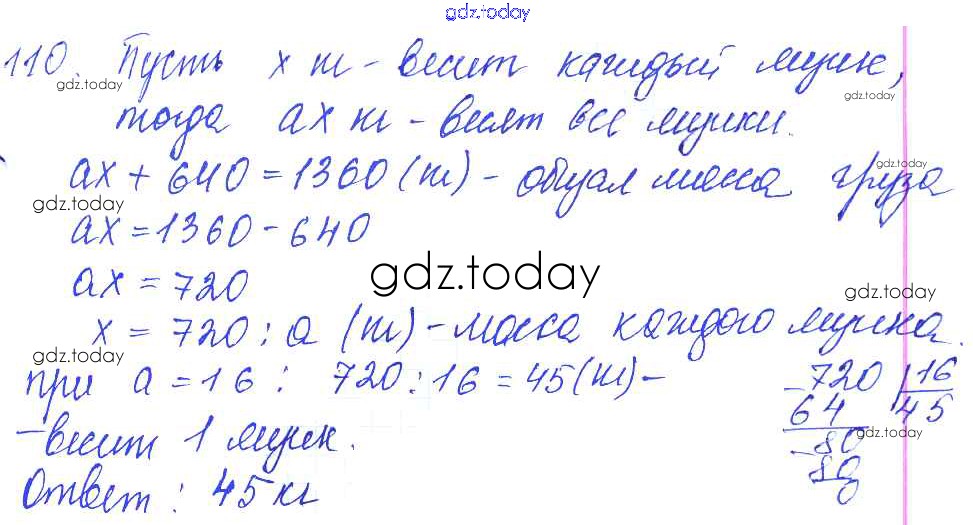 gdz.today
110. Пусть x кг - весит каждый ящик,
gdz.today
gdz.today
тогда ax кг - весят все ящики.
ax + 640 = 1360 (кг) - общая масса груза
gdz.today
gdz.today
ax = 1360 - 640
ax = 720
gdz.today
gdz.today
x = 720 : a (кг) - масса каждого ящика.
gdz.today
при a = 16 : 720 : 16 = 45 (кг) -
- весит 1 ящик.
Ответ : 45 кг
-720 16
64 45
gdz.today
-80
80
gdz.today